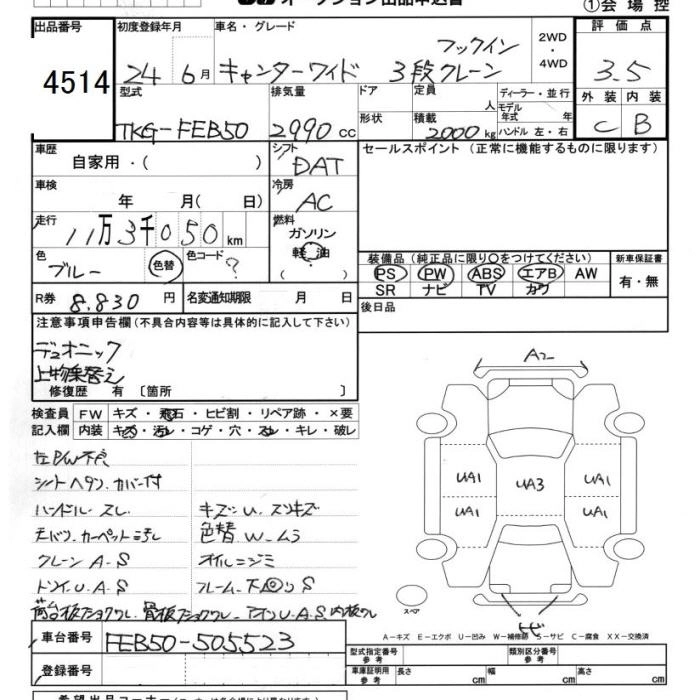 オークション出品申込書 ①会場控
出品番号 初度登録年月 車名・グレード 評価点
4514 24年6月 キャンターワイド フックイン 3段クレーン 2WD・4WD 3.5
型式 排気量 ドア 定員 人 ディーラー・並行 外装 内装
TKG-FEB50 2990cc 形状 積載 2000kg モデル年式 年 ハンドル 左・右 C B
車歴 自家用・( ) シフト DAT セールスポイント(正常に機能するものに限ります)
車検 年 月( 日) 冷房 AC
走行 11万3千050km 燃料 ガソリン 軽油 ( )
色 ブルー 色替 色コード ? 装備品(純正品に限り○をつけてください) 新車保証書
PS PW ABS エアB AW 有・無
SR ナビ TV カワ
R券 8.830円 名変通知期限 月 日 後日品
注意事項申告欄(不具合内容等は具体的に記入して下さい)
デュオニック
上物乗替え
修復歴 有 〔箇所 〕
検査員 FW キズ・飛石・ヒビ割・リペア跡・×要
記入欄 内装 キズ・汚レ・コゲ・穴・スレ・キレ・破レ
左PW不良
シートヘタリ.カバー付
ハンドル.スレ キズ.U.スリキズ
天バリ.カーペット汚レ 色替.W.ムラ
クレーン A.S オイルニジミ
トリイ.U.A.S フレーム.下回リS
荷台板
アオリU.A.S
A2
UA1 UA3 UA1
UA1 UA1
スペア
トビ
A-キズ E-エクボ U-凹み W-補修跡 S-サビ C-腐食 XX-交換済
車台番号 FEB50-505523
登録番号
型式指定番号 参考 類別区分番号 参考
車庫証明用 参考 長さ cm 幅 cm 高さ cm